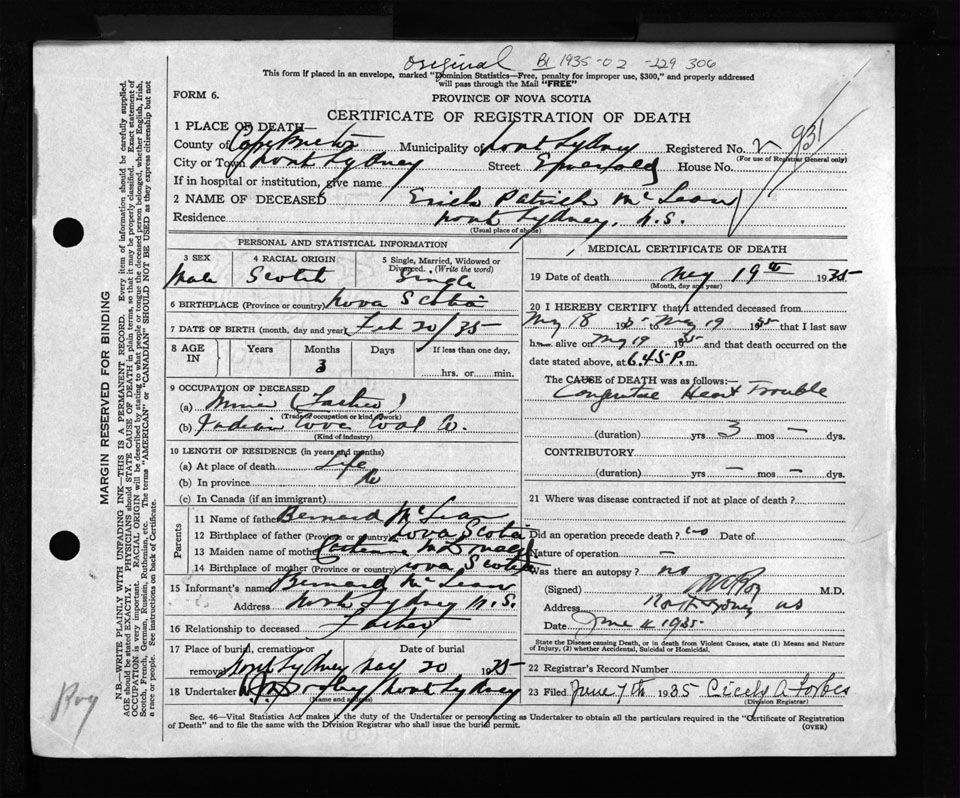 original B 1935-02-229306
This form if placed in an envelope, marked "Dominion Statistics—Free, penalty for improper use, $300," and properly addressed
will pass through the Mail "FREE"
FORM 6.
PROVINCE OF NOVA SCOTIA
CERTIFICATE OF REGISTRATION OF DEATH
1 PLACE OF DEATH—
County of Cape Breton Municipality of North Sydney Registered No. 931
(For use of Registrar General only)
City or Town North Sydney Street Emerald House No.
If in hospital or institution, give name
2 NAME OF DECEASED Patrick McLean
Residence North Sydney, N.S.
(Usual place of abode)
PERSONAL AND STATISTICAL INFORMATION
3 SEX 4 RACIAL ORIGIN 5 Single, Married, Widowed or Divorced. (Write the word)
Male Scotch Single
6 BIRTHPLACE (Province or country) Nova Scotia
7 DATE OF BIRTH (month, day and year) Feb 20/35
8 AGE IN Years Months Days If less than one day,
3 hrs. or min.
9 OCCUPATION OF DECEASED
(a) Miner (Father)
(Trade of occupation or kind of work)
(b) Indian Cove Coal Co.
(Kind of industry)
10 LENGTH OF RESIDENCE (in years and months)
(a) At place of death Life
(b) In province do
(c) In Canada (if an immigrant)
Parents
11 Name of father Bernard McLean
12 Birthplace of father (Province or country) Nova Scotia
13 Maiden name of mother Catherine McDonald
14 Birthplace of mother (Province or country) Nova Scotia
15 Informant's name Bernard McLean
Address North Sydney N.S.
16 Relationship to deceased Father
17 Place of burial, cremation or removal Date of burial
North Sydney May 20 1935
18 Undertaker North Sydney
(Name and address)
MEDICAL CERTIFICATE OF DEATH
19 Date of death May 19th 1935
(Month, day and year)
20 I HEREBY CERTIFY that I attended deceased from
May 18 1935 to May 19 1935 that I last saw
h alive on May 19 1935 and that death occurred on the
date stated above, at 6.45 P. m.
The CAUSE of DEATH was as follows:—
Congenital Heart Trouble
(duration) yrs 3 mos — dys.
CONTRIBUTORY
(duration) yrs — mos — dys.
21 Where was disease contracted if not at place of death?
Did an operation precede death? no Date of
Nature of operation —
Was there an autopsy? no
(Signed) M.D.
Address North Sydney NS
Date June 4 1935
State the Disease causing Death, or in death from Violent Causes, state (1) Means and Nature of Injury, (2) whether Accidental, Suicidal or Homicidal.
22 Registrar's Record Number
23 Filed June 7th 1935 Cicely A. Forbes
(Division Registrar)
Sec. 46—Vital Statistics Act makes it the duty of the Undertaker or person acting as Undertaker to obtain all the particulars required in the "Certificate of Registration
of Death" and to file the same with the Division Registrar who shall issue the burial permit. (OVER)
MARGIN RESERVED FOR BINDING
N.B.—WRITE PLAINLY WITH UNFADING INK—THIS IS A PERMANENT RECORD. Every item of information should be carefully supplied.
AGE should be stated EXACTLY. PHYSICIANS should STATE CAUSE OF DEATH in plain terms, so that it may be properly classified. Exact statement of
OCCUPATION is very important. RACIAL ORIGIN will be described by stating to what people or tongue the deceased person belonged, whether English, Irish,
Scotch, French, German, Russian, Ruthenian, etc. The terms "AMERICAN" or "CANADIAN" SHOULD NOT BE USED as they express citizenship but not
a race or people. See instructions on back of Certificate.
Roy